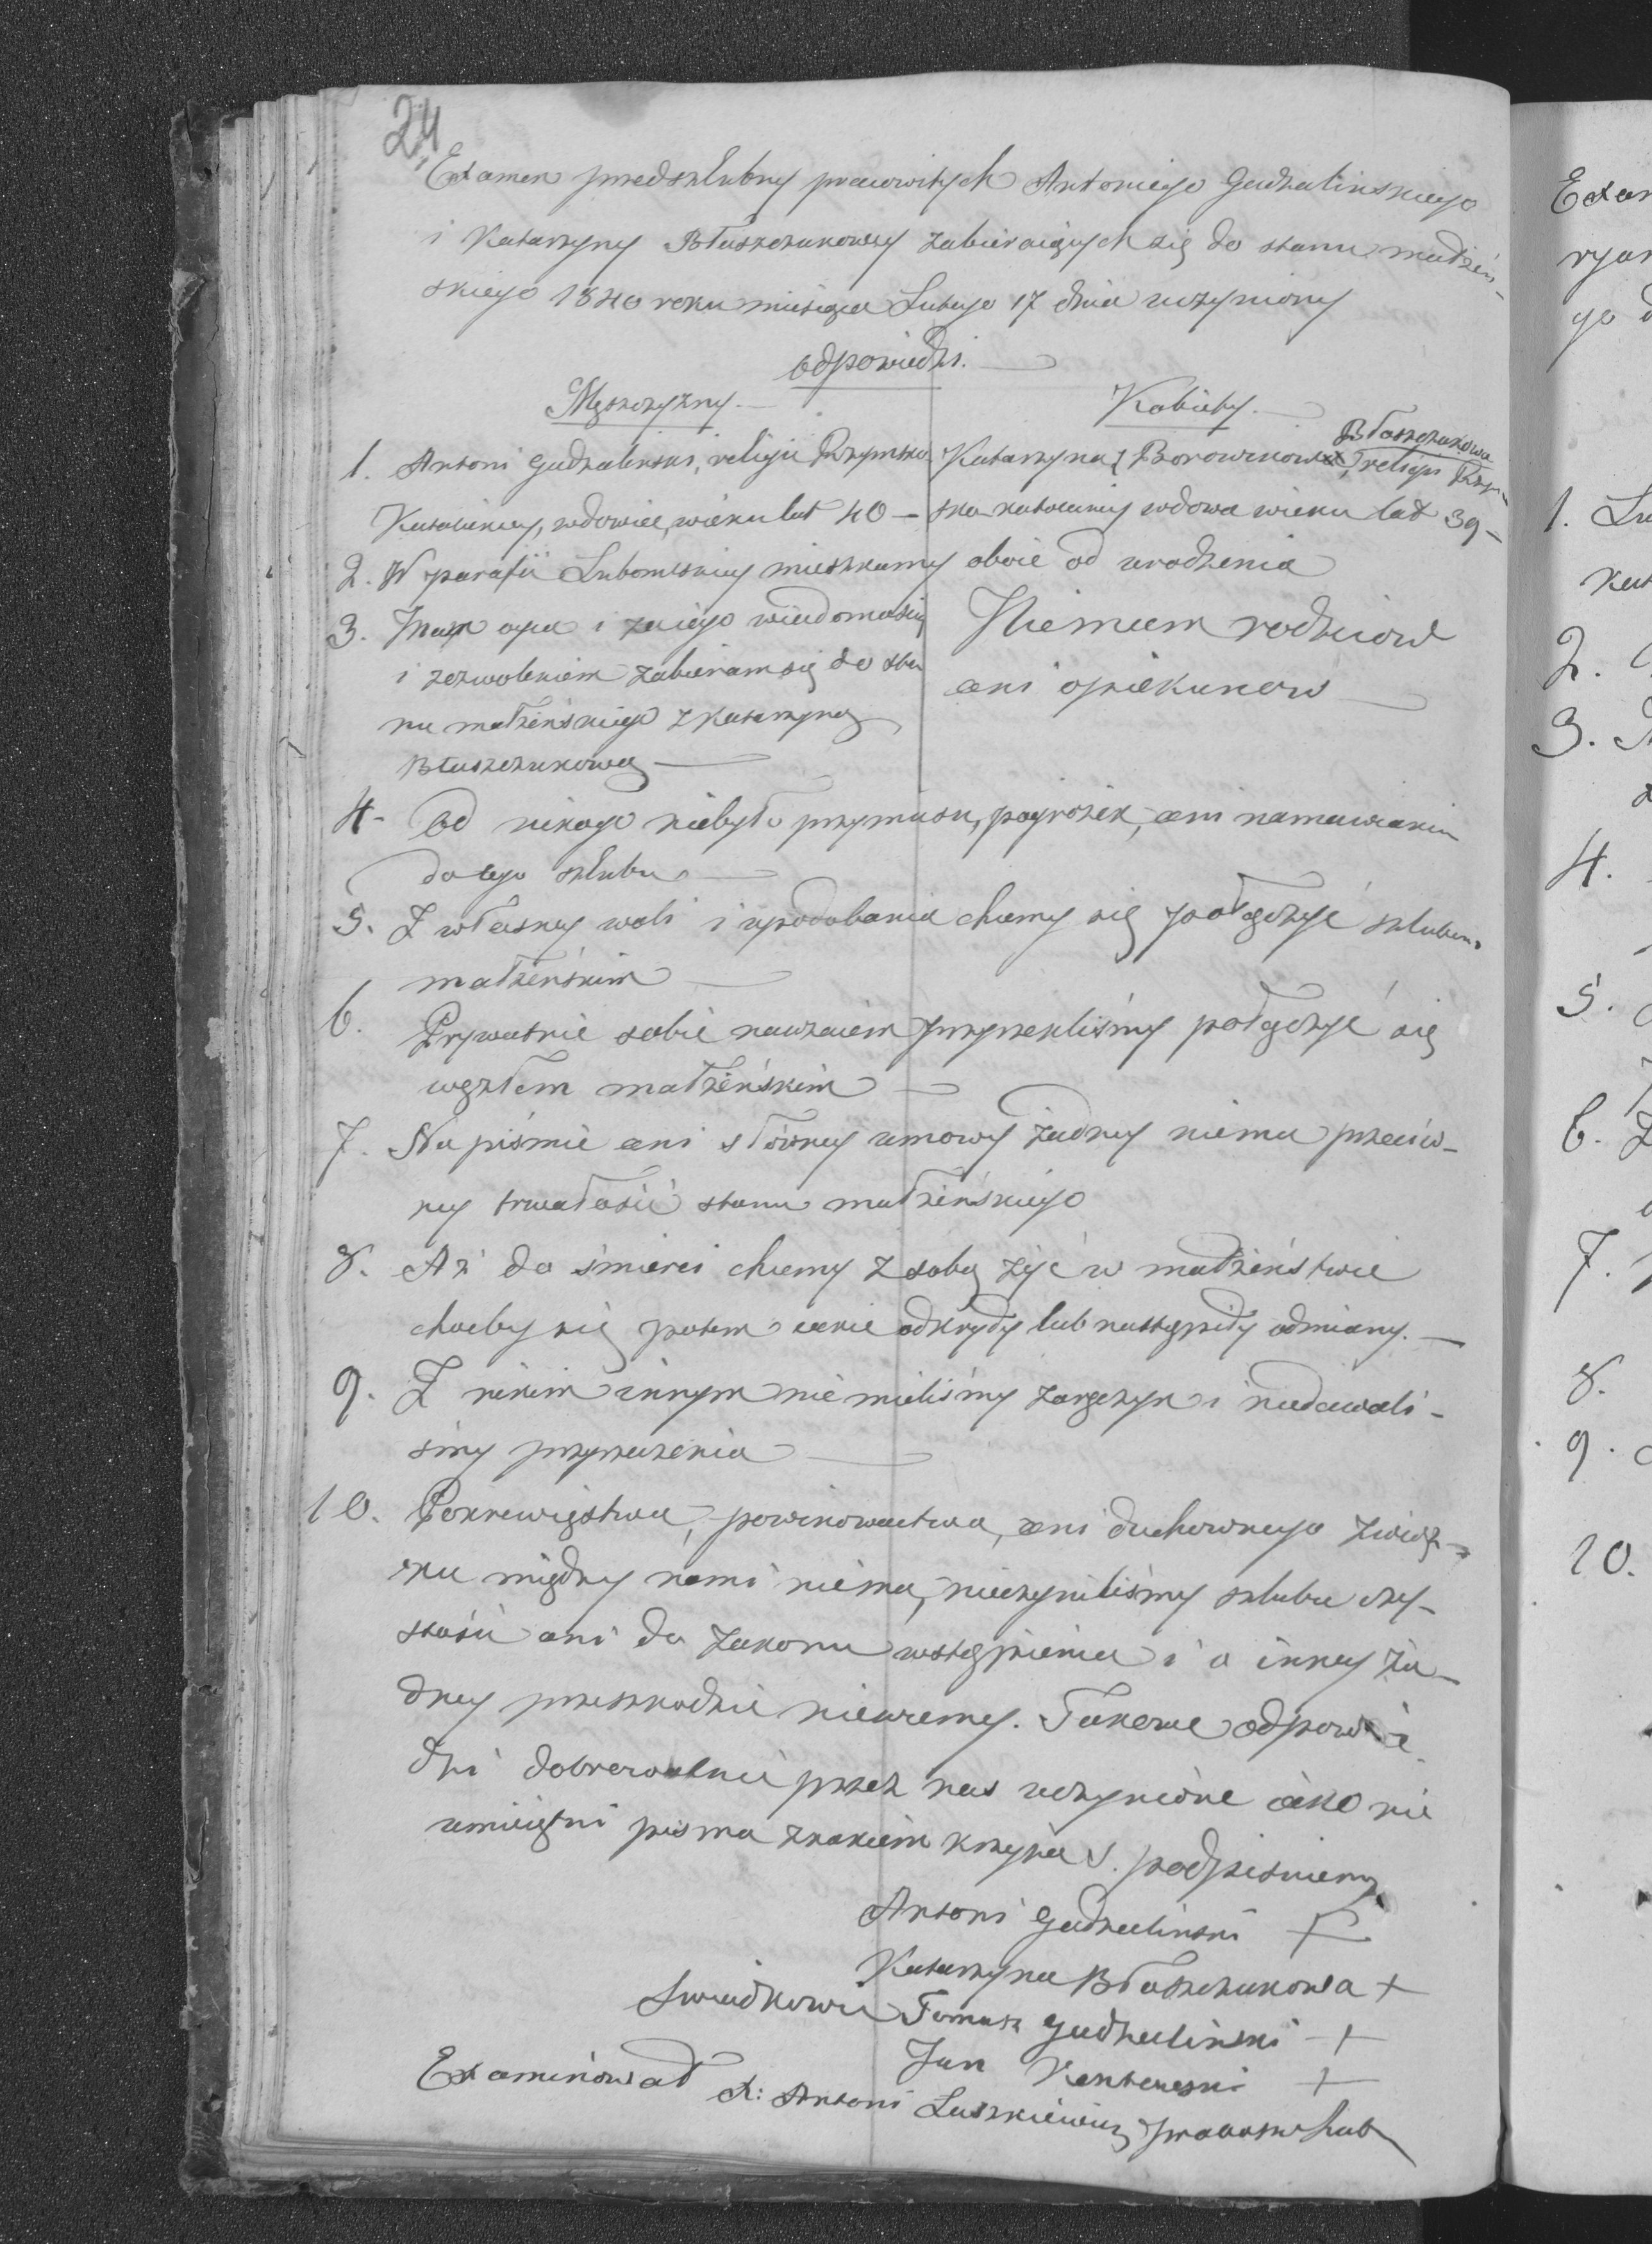 24
Examen przedszlubny pracowitych Antoniego Gudzalinskiego
i Katarzyny Błaszczukowey zabieraiących się do stanu małżeń-
skiego 1840 roku miesiąca Lutego 17 dnia uczyniony
odpowiedzi.
Męszczyzny. Kobiety.
1. Antoni Gudzalinski, religii Rzymsko Katarzyna z Borowikow Błaszczukowa religii Rzym-
Katolickiey, wdowiec, wieku lat 40 – sko katolickiey wdowa wieku lat 39 –
2. W parafii Lubomlskiey mieszkamy oboie od urodzenia
3. Mam oyca i za iego wiadomością Niemam rodziców
i zezwoleniem zabieram się do sta ani opiekunów
nu małżeńskiego z Katarzyną
Błaszczukową
4. Od nikogo niebyło przymusu, pogrożek, ani namawiania
do tego szlubu
5. Z własney woli i upodobania chcemy się połączyć szlubem
małżeńskim
6. Prywatnie sobie nawzaiem przyrzekliśmy połączyć się
węzłem małżeńskim
7. Na piśmie ani słowney umowy żadney niema przeciw-
ney trwałości stanu małżeńskiego
8. Aż do śmierci chcemy z sobą żyć w małżeństwie
choćby się potem iakie odkryły lub nastąpiły odmiany.
9. Z nikim innym nie mieliśmy zaręczyn i niedawali-
smy przyrzeczenia
10. Pokrewięstwa, powinowactwa, ani duchownego związ-
ku między nami niema, nieczyniliśmy szlubu czy-
stości ani do zakonu wstąpienia i o inney ża-
dney przeszkodzie niewiemy. Takowe odpowie
dzi dobrowolnie przez nas uczynione iako nie
umieiętni pisma znakiem krzyża S. podpisuiemy
Antoni Gudzalinski +
Katarzyna Błaszczukowa +
Swiadkowie Tomasz Gudzalinski +
Jan +
Examinował X: Antoni Laszkiewicz